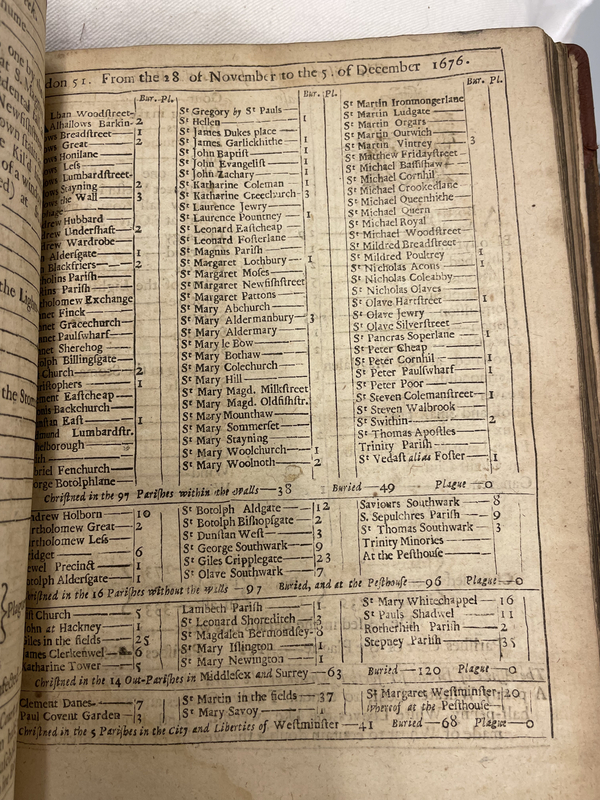 don 51. From the 28 of November to the 5. of December 1676.
Bur. Pl.
lhan Woodstreet-
Alhallows Barkin- 2
ows Breadstreet— 1
ows Great— 2
ows Honilane
ows Less
ows Lumbardstreet-
ows Stayning — 2
ows the Wall — 3
drew Hubbard
drew Undershaft— 2
drew Wardrobe
Aldersgate— 1
Blackfriers— 2
holins Parish
kins Parish
tholomew Exchange
net Finck
net Gracechurch
net Paulswharf
net Sherehog
tolph Billingsgate
Church 2
ristophers 1
ment Eastcheap
onis Backchurch
nstan East 1
mund Lumbardstr.
helborough
ith
briel Fenchurch
orge Botolphlane
Bur. Pl.
St Gregory by St Pauls
St Hellen 1
St James Dukes place
St James Garlickhithe
St John Baptist 1
St John Evangelist 1
St John Zachary 1
St Katharine Coleman 1
St Katharine Creechurch- 3
St Laurence Jewry
St Laurence Pountney 1
St Leonard Eastcheap
St Leonard Fosterlane
St Magnus Parish
St Margaret Lothbury 1
St Margaret Moses
St Margaret Newfishstreet
St Margaret Pattons
St Mary Abchurch
St Mary Aldermanbury 3
St Mary Aldermary
St Mary le Bow
St Mary Bothaw
St Mary Colechurch
St Mary Hill
St Mary Magd. Milkstreet
St Mary Magd. Oldfishstr.
St Mary Mounthaw
St Mary Sommerset
St Mary Stayning
St Mary Woolchurch 1
St Mary Woolnoth 2
Bur. Pl.
St Martin Ironmongerlane
St Martin Ludgate
St Martin Orgars
St Martin Outwich
St Martin Vintrey 3
St Matthew Fridaystreet
St Michael Bassishaw
St Michael Cornhil
St Michael Crookedlane
St Michael Queenhithe
St Michael Quern
St Michael Royal
St Michael Woodstreet
St Mildred Breadstreet
St Mildred Poultrey 1
St Nicholas Acons 1
St Nicholas Coleabby
St Nicholas Olaves
St Olave Hartstreet 1
St Olave Jewry
St Olave Silverstreet
St Pancras Soperlane 1
St Peter Cheap
St Peter Cornhil 1
St Peter Paulswharf 1
St Peter Poor
St Steven Colemanstreet 1
St Steven Walbrook
St Swithin 2
St Thomas Apostles
Trinity Parish
St Vedast alias Foster 1
Christned in the 97 Parishes within the Walls—38 Buried—49 Plague—0
ndrew Holborn 10
rtholomew Great 2
rtholomew Less
ridget 6
ewel Precinct 1
otolph Aldersgate 1
St Botolph Aldgate 12
St Botolph Bishopsgate 2
St Dunstan West 3
St George Southwark 9
St Giles Cripplegate 23
St Olave Southwark 7
Saviours Southwark 8
S. Sepulchres Parish 9
St Thomas Southwark 3
Trinity Minories
At the Pesthouse
Christned in the 16 Parishes without the Walls—97 Buried, and at the Pesthouse—96 Plague—0
ist Church 5
John at Hackney 1
Giles in the fields 25
James Clerkenwel 6
Katharine Tower 5
Lambeth Parish 1
St Leonard Shoreditch 3
St Magdalen Bermondsey- 8
St Mary Islington 1
St Mary Newington 1
St Mary Whitechappel 16
St Pauls Shadwel 11
Rotherhith Parish 2
Stepney Parish 35
Christned in the 14 Out-Parishes in Middlesex and Surrey—63 Buried—120 Plague—0
Clement Danes 7
Paul Covent Garden 3
St Martin in the fields 37
St Mary Savoy 1
St Margaret Westminster 20
whereof at the Pesthouse
Christned in the 5 Parishes in the City and Liberties of Westminster—41 Buried—68 Plague—0